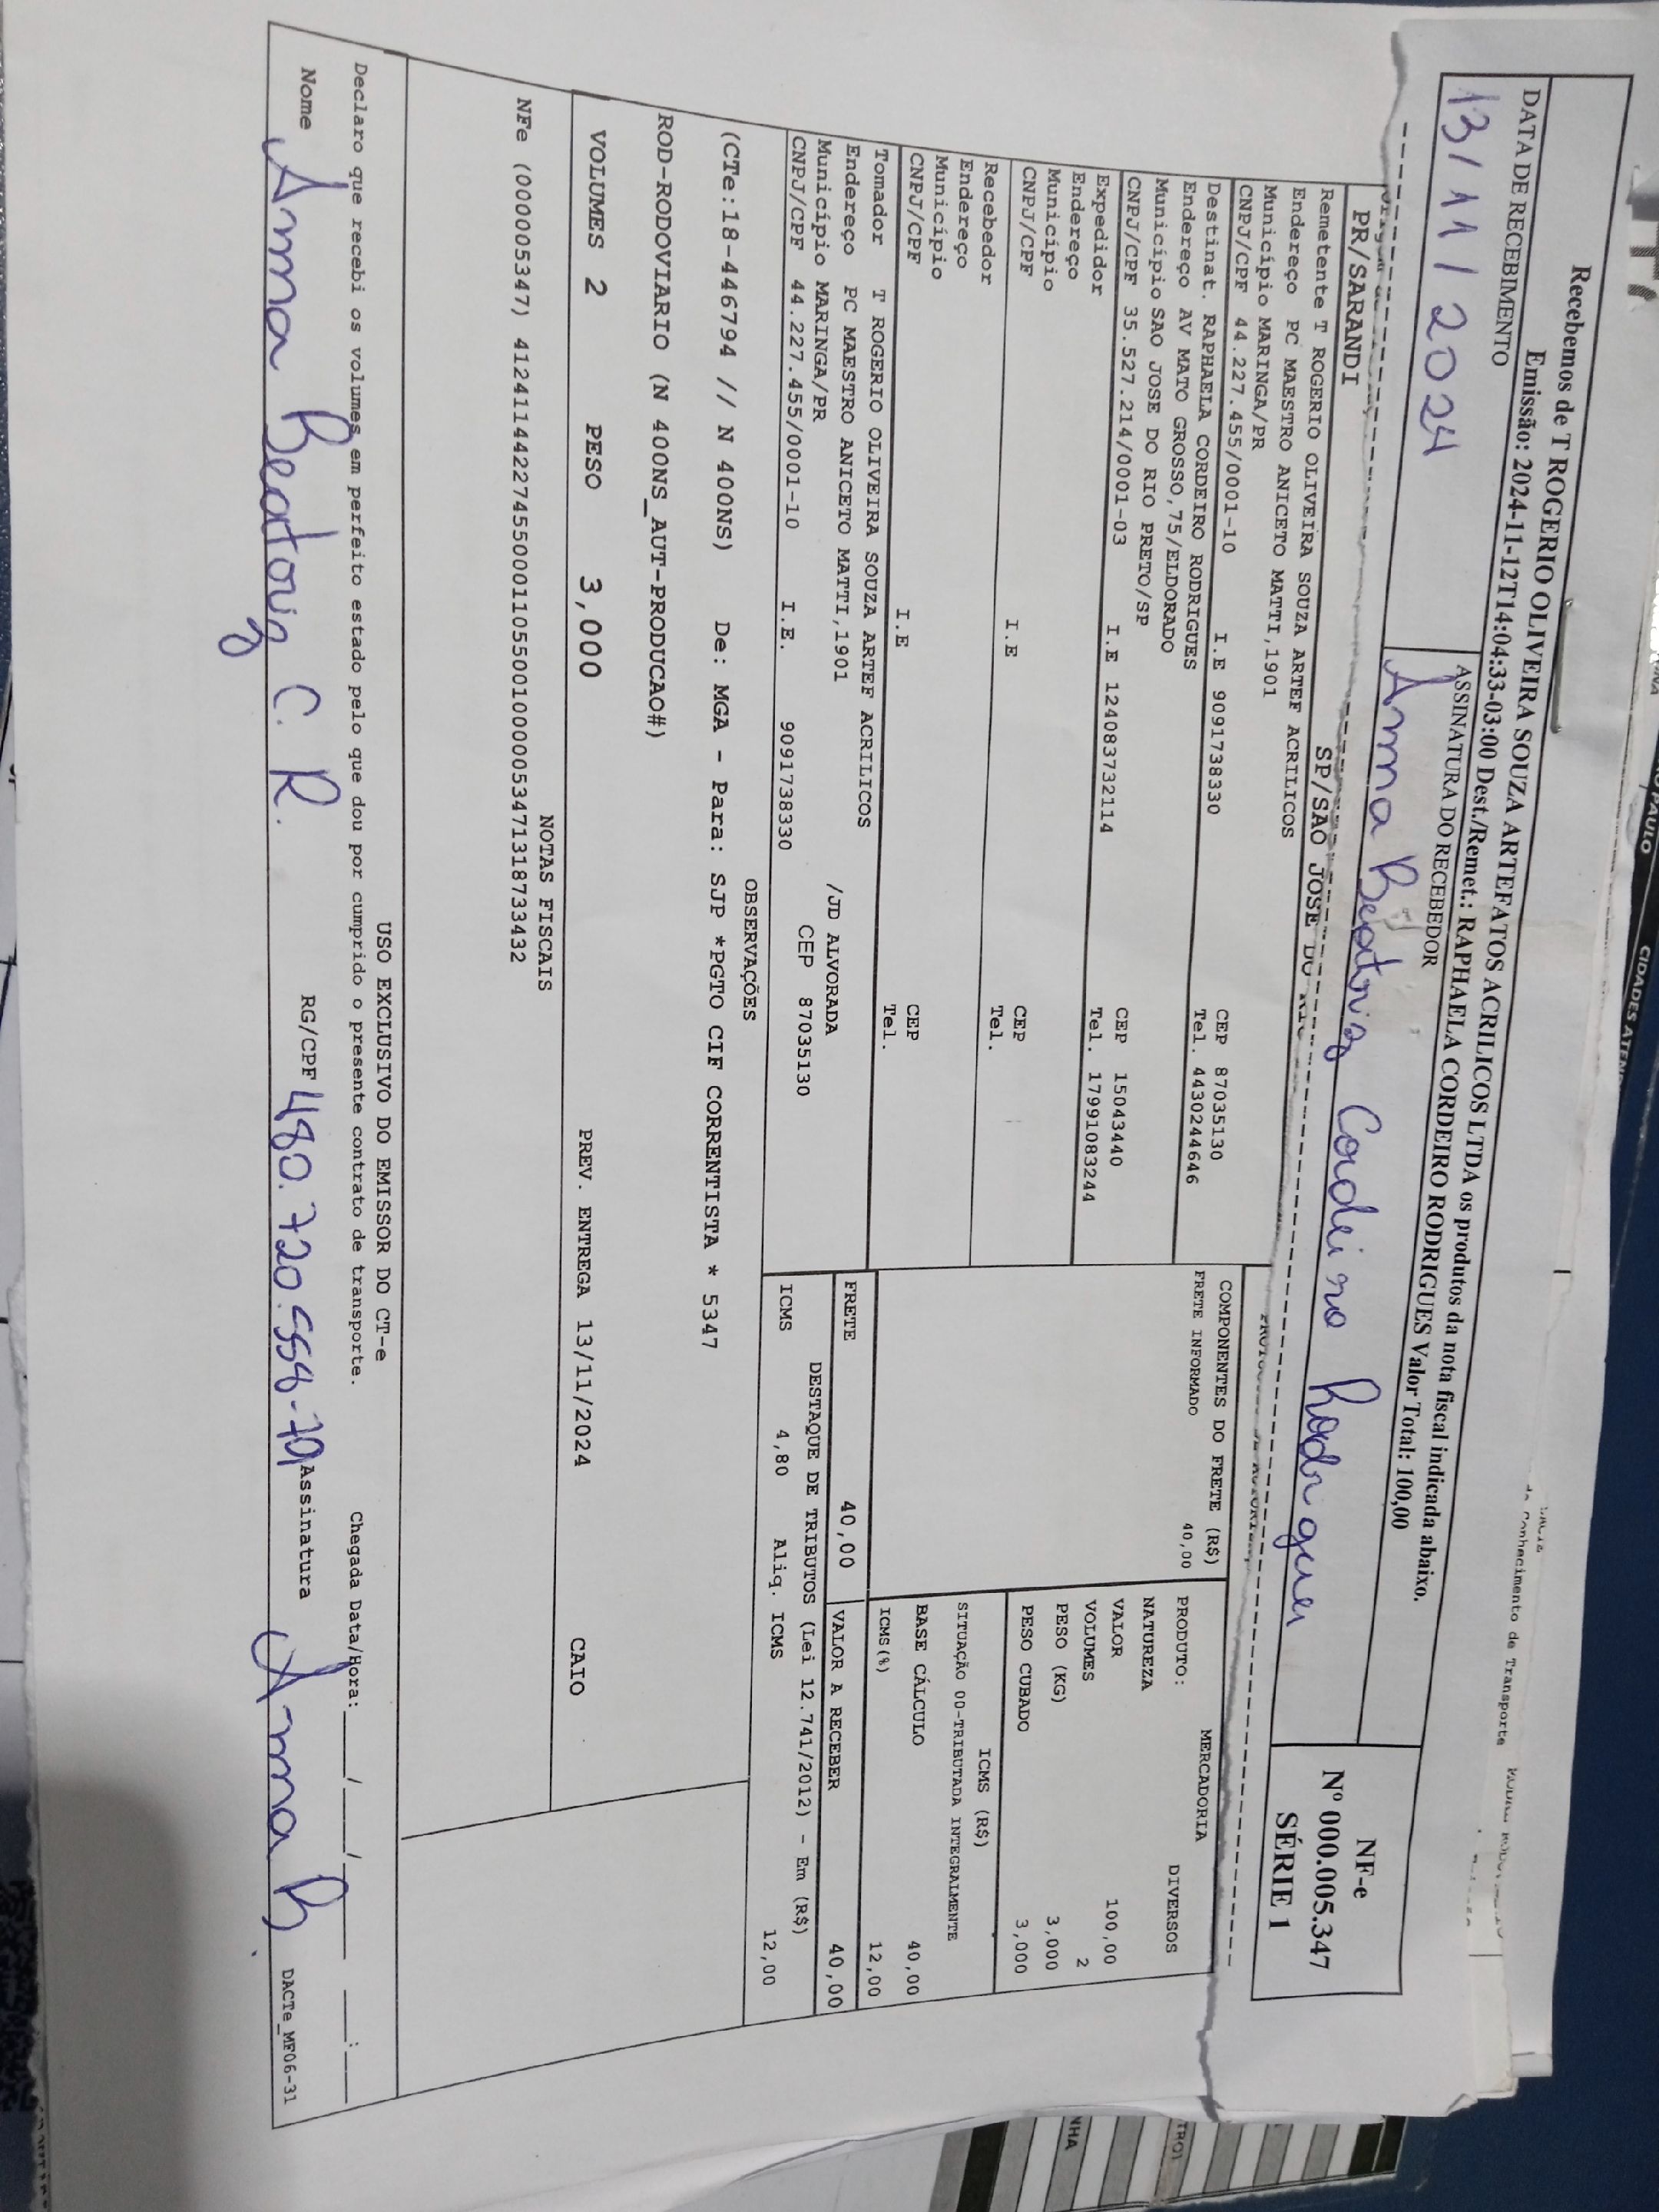 Recebemos de T ROGERIO OLIVEIRA SOUZA ARTEFATOS ACRILICOS LTDA os produtos da nota fiscal indicada abaixo.
Emissão: 2024-11-12T14:04:33-03:00 Dest./Remet.: RAPHAELA CORDEIRO RODRIGUES Valor Total: 100,00
DATA DE RECEBIMENTO
ASSINATURA DO RECEBEDOR
13/11/2024
Anna Beatriz Cordeiro Rodrigues
NF-e
Nº 000.005.347
SÉRIE 1
PR/SARANDI
SP/SAO JOSE DO
Remetente T ROGERIO OLIVEIRA SOUZA ARTEF ACRILICOS
Endereço PC MAESTRO ANICETO MATTI,1901
Município MARINGA/PR
CEP 87035130
CNPJ/CPF 44.227.455/0001-10 I.E 9091738330
Tel. 4430244646
Destinat. RAPHAELA CORDEIRO RODRIGUES
Endereço AV MATO GROSSO,75/ELDORADO
Município SAO JOSE DO RIO PRETO/SP
CEP 15043440
CNPJ/CPF 35.527.214/0001-03 I.E 124083732114
Tel. 17991083244
Expedidor
Endereço
Município
CEP
CNPJ/CPF I.E
Tel.
Recebedor
Endereço
Município
CEP
CNPJ/CPF I.E
Tel.
Tomador T ROGERIO OLIVEIRA SOUZA ARTEF ACRILICOS
Endereço PC MAESTRO ANICETO MATTI,1901 /JD ALVORADA
Município MARINGA/PR CEP 87035130
CNPJ/CPF 44.227.455/0001-10 I.E. 9091738330
COMPONENTES DO FRETE (R$)
FRETE INFORMADO 40,00
MERCADORIA
PRODUTO: DIVERSOS
NATUREZA
VALOR 100,00
VOLUMES 2
PESO (KG) 3,000
PESO CUBADO 3,000
ICMS (R$)
SITUAÇÃO 00-TRIBUTADA INTEGRALMENTE
BASE CÁLCULO 40,00
ICMS(%) 12,00
FRETE 40,00
VALOR A RECEBER 40,00
DESTAQUE DE TRIBUTOS (Lei 12.741/2012) - Em (R$)
ICMS 4,80 Aliq. ICMS 12,00
OBSERVAÇÕES
(CTe:18-446794 // N 400NS) De: MGA - Para: SJP *PGTO CIF CORRENTISTA * 5347
ROD-RODOVIARIO (N 400NS_AUT-PRODUCAO#)
VOLUMES 2 PESO 3,000 PREV. ENTREGA 13/11/2024 CAIO
NOTAS FISCAIS
NFe (000005347) 41241144227455000110550010000053471318733432
USO EXCLUSIVO DO EMISSOR DO CT-e
Declaro que recebi os volumes em perfeito estado pelo que dou por cumprido o presente contrato de transporte. Chegada Data/Hora: ____/____/____ ___:___
Nome Anna Beatriz C. R. RG/CPF 480.720.558-79 Assinatura Anna B
DACTe_MF06-31
de Conhecimento de Transporte
CIDADES
PAULO